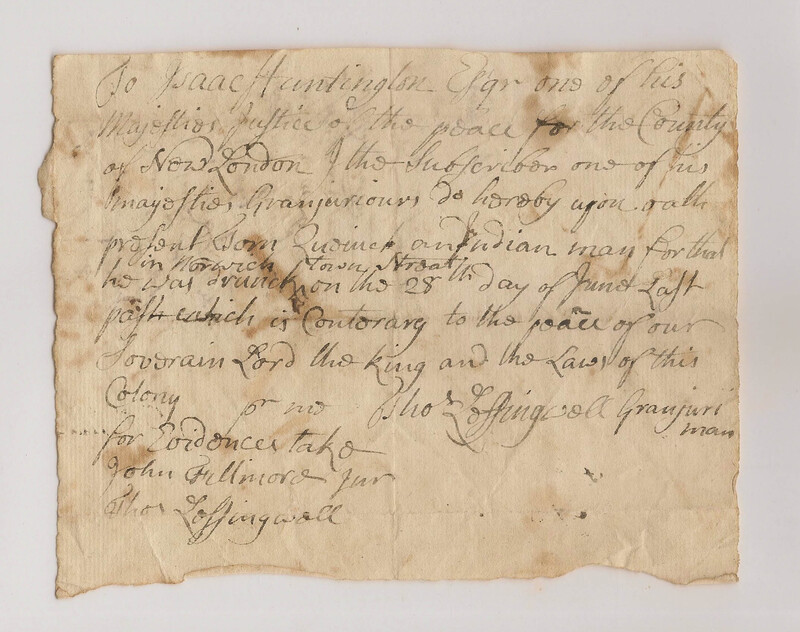 To Isaac Huntington Esqr one of his
Majesties Justice of the peace for the County
of New London I the Subscriber one of his
majesties Granjuriours do hereby upon oath
present Tom an Indian man for that
in Norwich Town Streat
he was drunck on the 28th day of June Last
past which is Conterary to the peace of our
Soverain Lord the King and the Laws of this
Colony pr me Thos Leffingwell Granjuri
man
for Evidences take
John Fillmore Jur
Thos Leffingwell